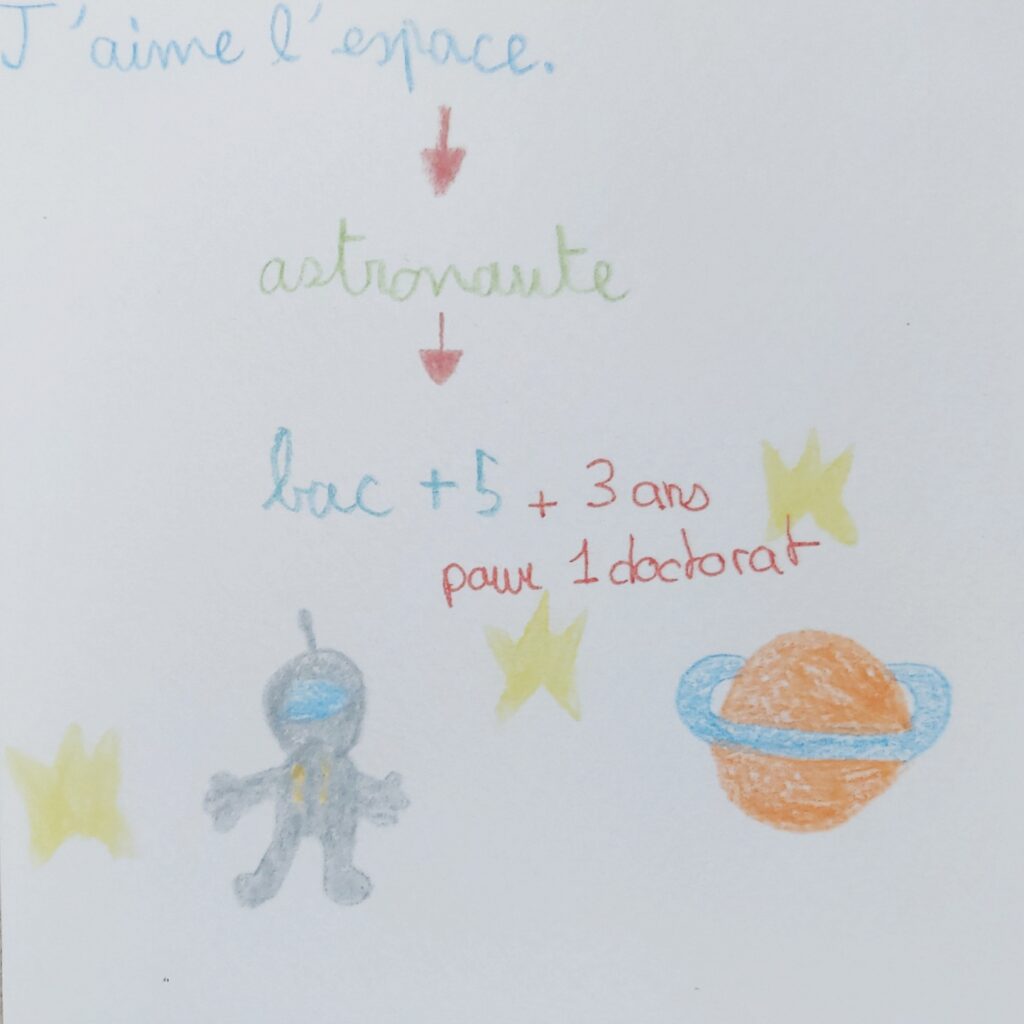 J'aime l'espace.
astronaute
bac +5 + 3 ans
pour 1 doctorat